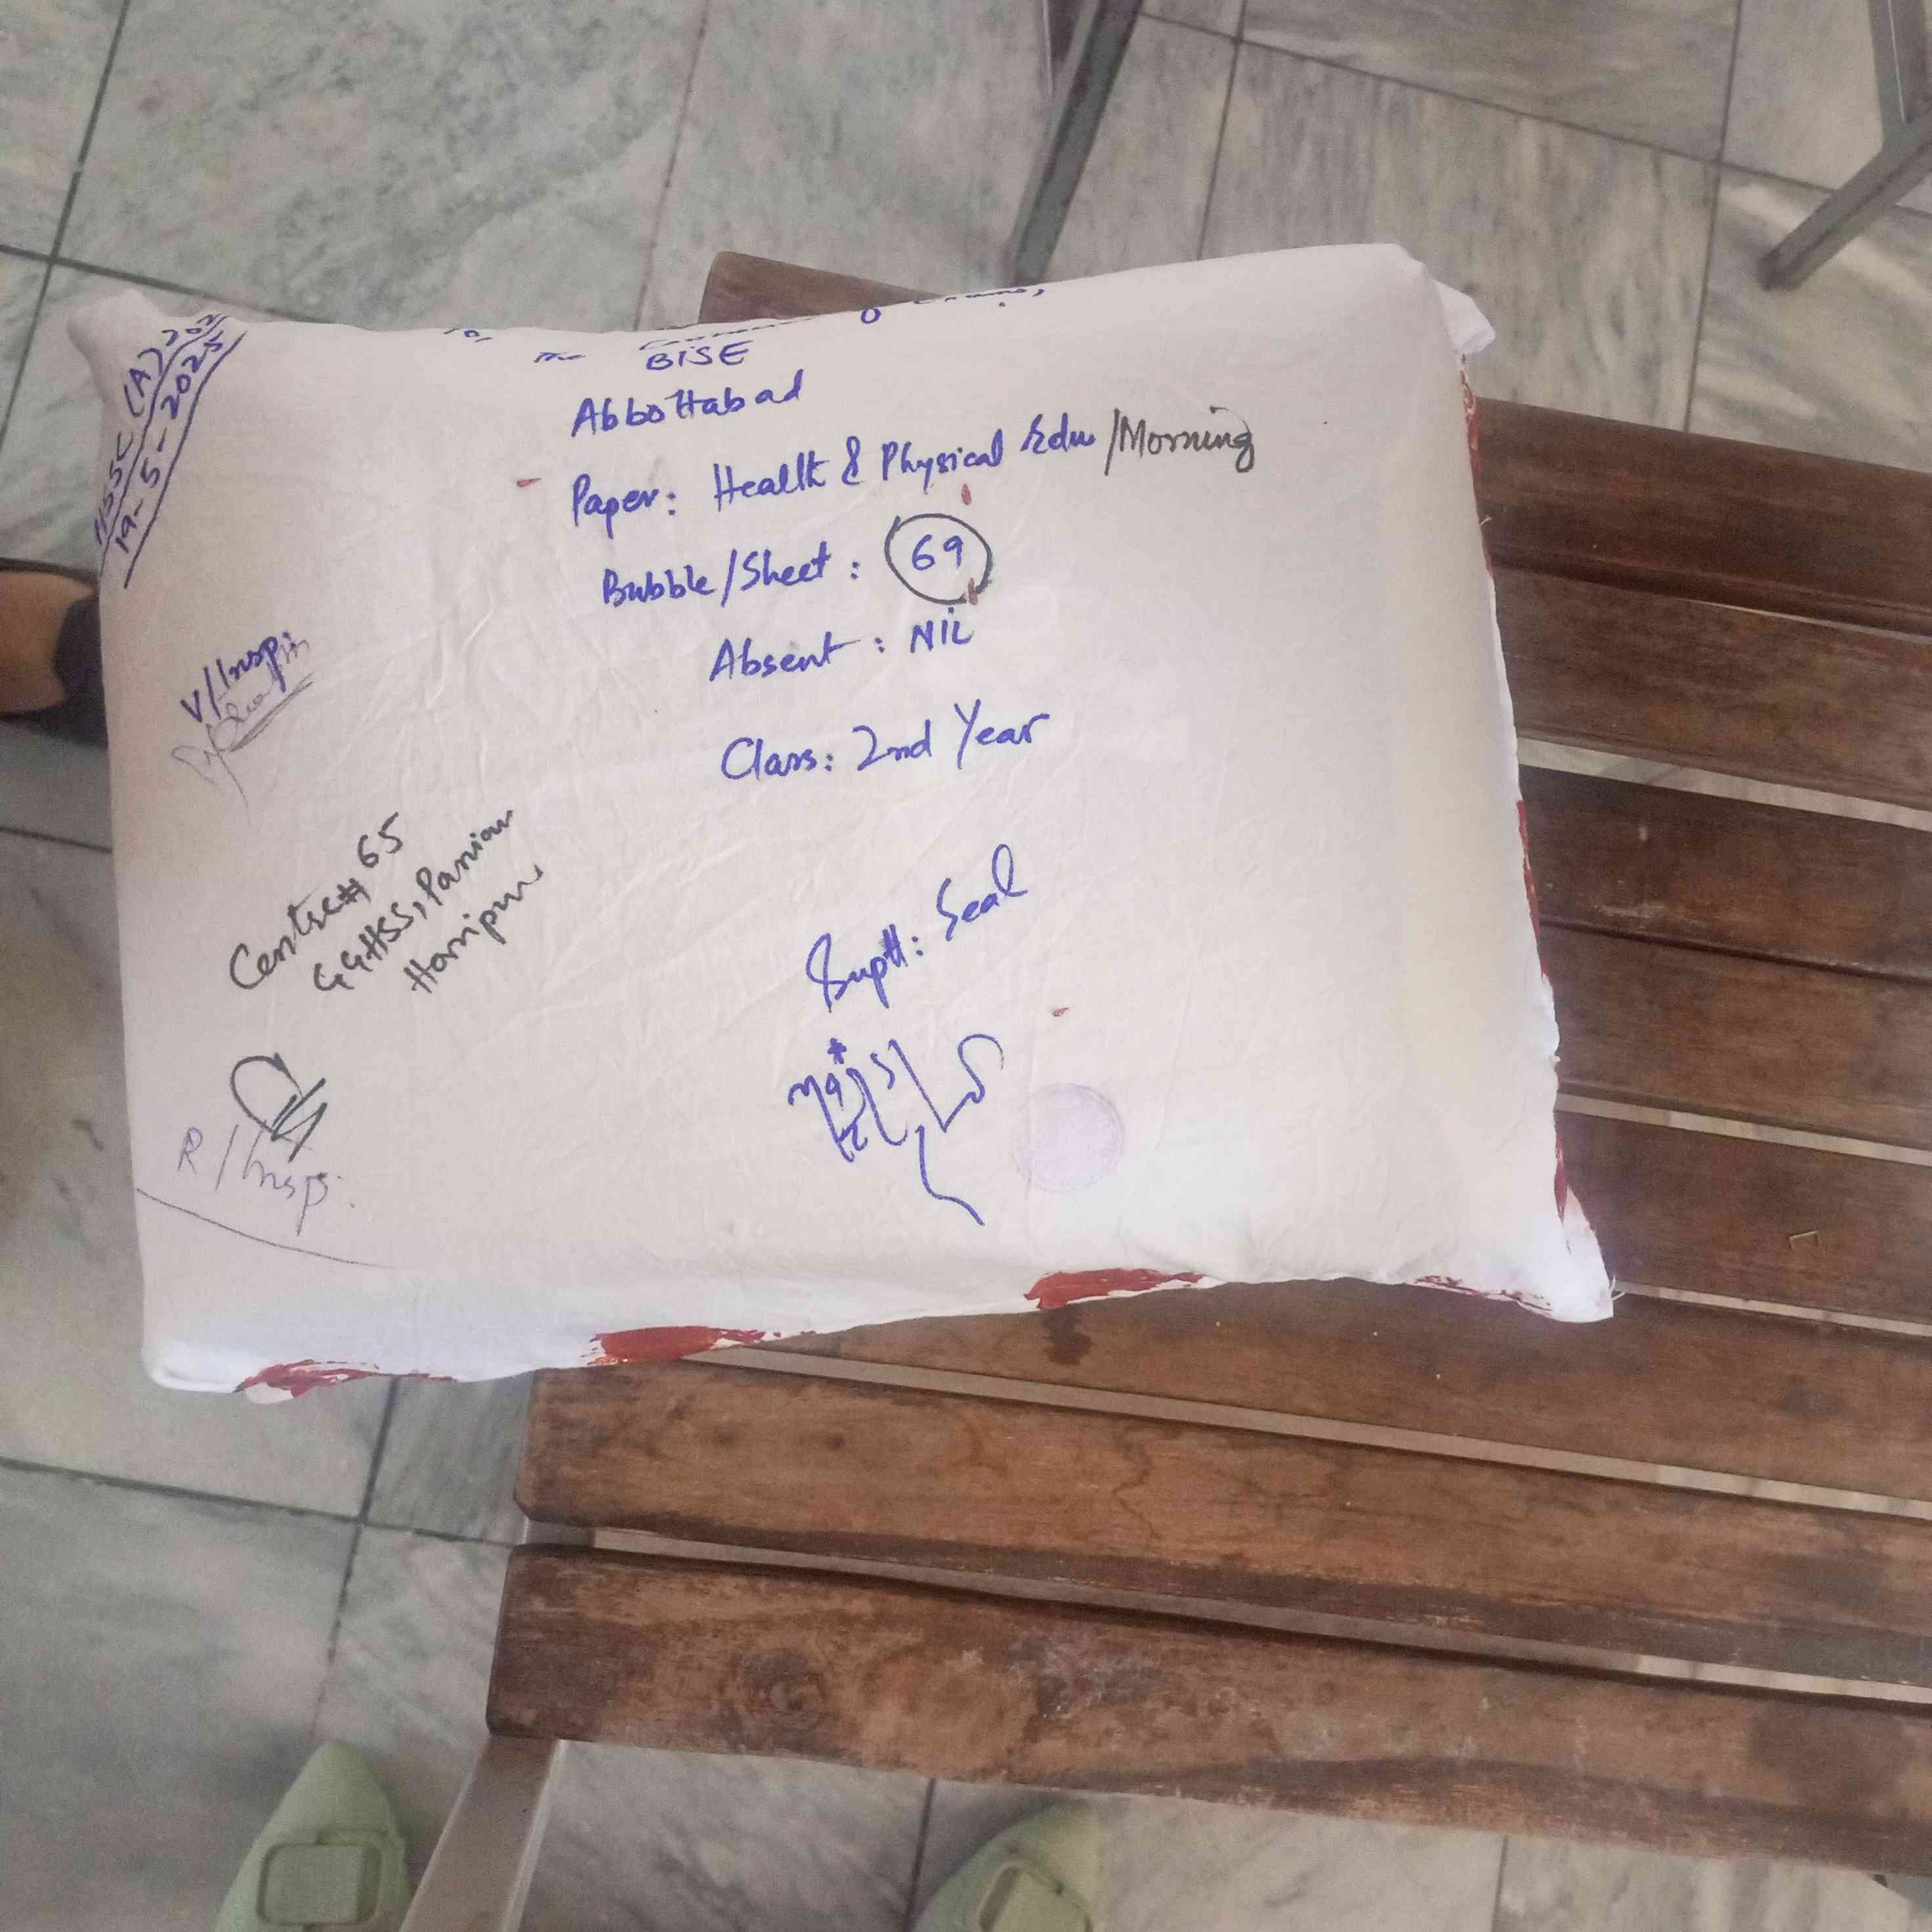 HSSC (A) 202
19-5-2025
The
BISE
Abbottabad
Paper: Health & Physical Edu /Morning
Bubble/Sheet: 69
Absent: NIL
Class: 2nd Year
V/Insp:
Centre# 65
GGHSS, Panian
Haripur
Suptt: Seal
R/Insp.